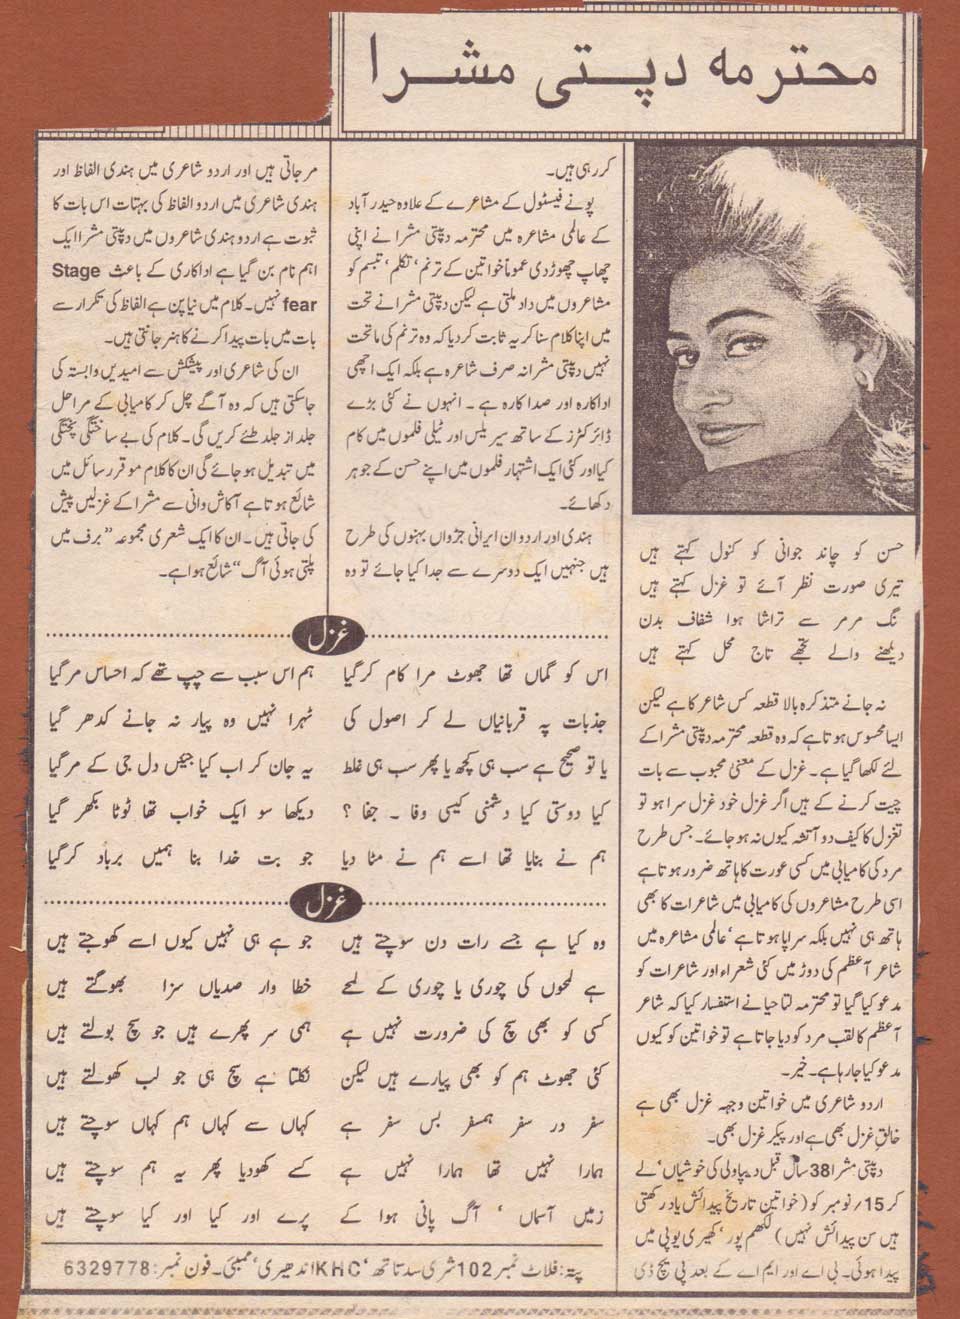 محترمہ دپتی مشرا
حسن کو چاند جوانی کو کنول کہتے ہیں
تیری صورت نظر آئے تو غزل کہتے ہیں
نگ مرمر سے تراشا ہوا شفاف بدن
دیکھنے والے تجھے تاج محل کہتے ہیں
نہ جانے متذکرہ بالا قطعہ کس شاعر کا ہے لیکن
ایسا محسوس ہوتا ہے کہ وہ قطعہ محترمہ دپتی مشرا کے
لئے لکھا گیا ہے۔ غزل کے معنی محبوب سے بات
چیت کرنے کے ہیں اگر غزل خود غزل سرا ہو تو
تغزل کا کیف دو آتشہ کیوں نہ ہو جائے۔ جس طرح
مرد کی کامیابی میں کسی عورت کا ہاتھ ضرور ہوتا ہے
اسی طرح مشاعروں کی کامیابی میں شاعرات کا بھی
ہاتھ ہی نہیں بلکہ سراپا ہوتا ہے، عالمی مشاعرہ میں
شاعر آعظم کی دوڑ میں کئی شعراء اور شاعرات کو
مدعو کیا گیا تو محترمہ لتا حیا نے استفسار کیا کہ شاعر
آعظم کا لقب مرد کو دیا جاتا ہے تو خواتین کو کیوں
مدعو کیا جا رہا ہے۔ خیر۔
اردو شاعری میں خواتین وجہہ غزل بھی ہے
خالقِ غزل بھی ہے اور پیکر غزل بھی۔
دپتی مشرا 38 سال قبل دیپاولی کی خوشیاں لے
کر 15/ نومبر کو (خواتین تاریخ پیدائش یاد رکھتی
ہیں سن پیدائش نہیں) لکھم پور، کھیری یوپی میں
پیدا ہوئی۔ بی اے اور ایم اے کے بعد پی ایچ ڈی
کر رہی ہیں۔
پونے فیسٹول کے مشاعرے کے علاوہ حیدر آباد
کے عالمی مشاعرہ میں محترمہ دپتی مشرا نے اپنی
چھاپ چھوڑ دی عموماً خواتین کے ترنم، تکلم، تبسم کو
مشاعروں میں داد ملتی ہے لیکن دپتی مشرا نے تحت
میں اپنا کلام سنا کر یہ ثابت کر دیا کہ وہ ترنم کی ماتحت
نہیں دپتی مشرا نہ صرف شاعرہ ہے بلکہ ایک اچھی
اداکارہ اور صداکارہ ہے۔ انہوں نے کئی بڑے
ڈائرکٹرز کے ساتھ سیریلس اور ٹیلی فلموں میں کام
کیا اور کئی ایک اشتہار فلموں میں اپنے حسن کے جوہر
دکھائے۔
ہندی اور اردو ان ایرانی جڑواں بہنوں کی طرح
ہیں جنہیں ایک دوسرے سے جدا کیا جائے تو وہ
مر جاتی ہیں اور اردو شاعری میں ہندی الفاظ اور
ہندی شاعری میں اردو الفاظ کی بہتات اس بات کا
ثبوت ہے اردو ہندی شاعروں میں دپتی مشرا ایک
اہم نام بن گیا ہے اداکاری کے باعث Stage
fear نہیں۔ کلام میں نیا پن ہے الفاظ کی تکرار سے
بات میں بات پیدا کرنے کا ہنر جانتی ہیں۔
ان کی شاعری اور پیشکش سے امیدیں وابستہ کی
جا سکتی ہیں کہ وہ آگے چل کر کامیابی کے مراحل
جلد از جلد طئے کریں گی۔ کلام کی بے ساختگی پختگی
میں تبدیل ہو جائے گی ان کا کلام موقر رسائل میں
شائع ہوتا ہے آکاش وانی سے مشرا کے غزلیں پیش
کی جاتی ہیں۔ ان کا ایک شعری مجموعہ ”برف میں
پلتی ہوئی آگ“ شائع ہوا ہے۔
غزل
اس کو گماں تھا جھوٹ مرا کام کر گیا ہم اس سبب سے چپ تھے کہ احساس مر گیا
جذبات پہ قربانیاں لے کر اصول کی ٹہرا نہیں وہ پیار نہ جانے کدھر گیا
یا تو صحیح ہے سب ہی کچھ یا پھر سب ہی غلط یہ جان کر اب کیا جئیں دل جی کے مر گیا
کیا دوستی کیا دشمنی کیسی وفا ۔ جفا ؟ دیکھا سو ایک خواب تھا ٹوٹا بکھر گیا
ہم نے بنایا تھا اسے ہم نے مٹا دیا جو بت خدا بنا ہمیں برباد کر گیا
غزل
وہ کیا ہے جسے رات دن سوچتے ہیں جو ہے ہی نہیں کیوں اسے کھوجتے ہیں
ہے لمحوں کی چوری یا چوری کے لمحے خطا وار صدیاں سزا بھوگتے ہیں
کسی کو بھی سچ کی ضرورت نہیں ہے ہمی سر پھرے ہیں جو سچ بولتے ہیں
کئی جھوٹ ہم کو بھی پیارے ہیں لیکن نکلتا ہے سچ ہی جو لب کھولتے ہیں
سفر در سفر ہمسفر بس سفر ہے کہاں سے کہاں ہم کہاں سوچتے ہیں
ہمارا نہیں تھا ہمارا نہیں ہے کسے کھو دیا پھر یہ ہم سوچتے ہیں
زمیں آسماں ، آگ پانی ہوا کے پرے اور کیا اور کیا سوچتے ہیں
پتہ: فلاٹ نمبر 102 شری سدناتھ، KHC اندھیری، ممبئی۔ فون نمبر: 6329778